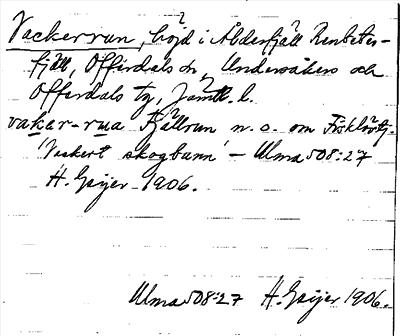 Vackerrun, höjd i Ålderfjäll Renbetes-
fjäll, Offerdals sn, Undersåkers och
Offerdals tg, Jämtl. l.
vakar-rua Fjällrun n. o. om
'Vackert skogbunn' – Ulma 508:27
H. Geijer 1906.
Ulma 508:27 H. Geijer 1906.